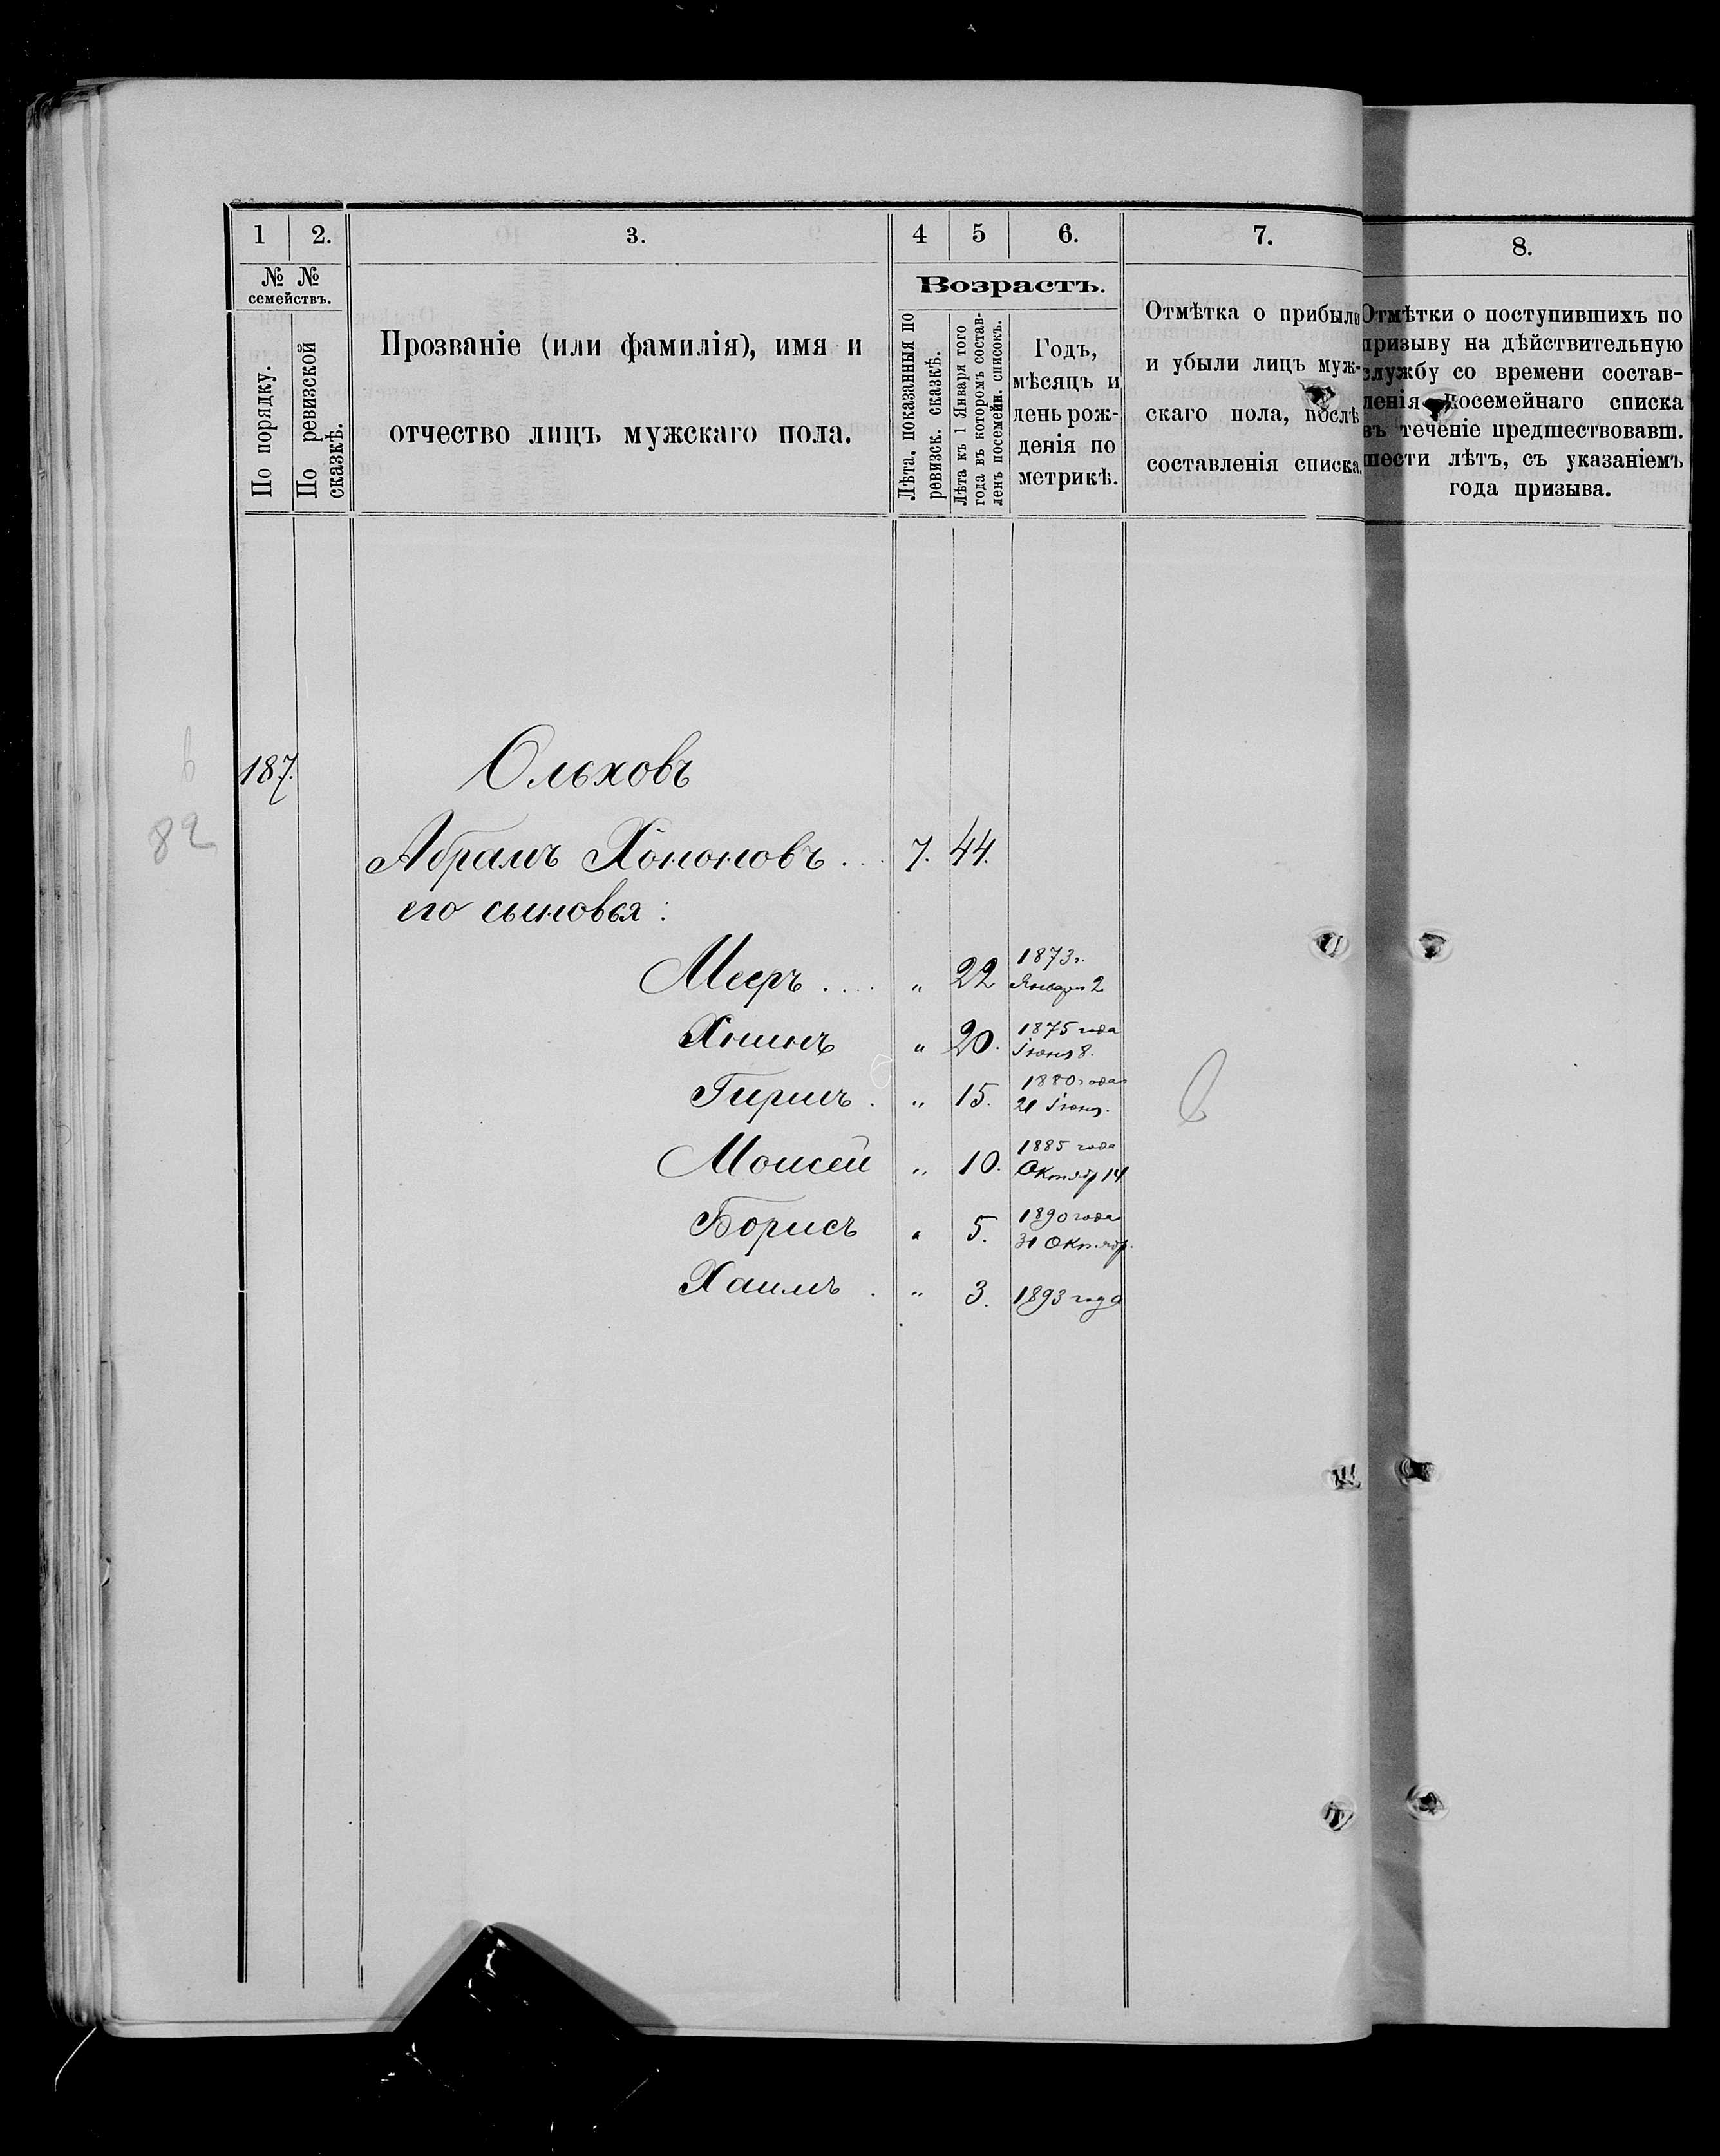 1 2. 3. 4 5 6. 7. 8.
№ №
семействъ.
По порядку.
По ревизской
сказкѣ.
Прозваніе (или фамилія), имя и
отчество лицъ мужскаго пола.
Возрастъ.
Лѣта, показанныя по
ревизск. сказкѣ.
Лѣта къ 1 Января того
года въ которомъ состав-
ленъ посемейн. списокъ.
Годъ,
мѣсяцъ и
день рож-
денія по
метрикѣ.
Отмѣтка о прибыли
и убыли лицъ муж-
скаго пола, послѣ
составленія списка.
Отмѣтки о поступившихъ по
призыву на дѣйствительную
службу со времени состав-
ленія посемейнаго списка
въ теченіе предшествовавш.
шести лѣтъ, съ указаніемъ
года призыва.
187. Ольховъ
82
Абрамъ Хононовъ . . . 7. 44.
его сыновья :
Мееръ . . . . " 22 1873 г.
Января 2
Хнинъ " 20. 1875 года
Іюня 8.
Гиршъ . " 15. 1880 года
21 Іюня.
Моисей " 10. 1885 года
Октябр 14
Борисъ " 5. 1890 года
31 Октябр.
Хаимъ . " 3. 1893 года